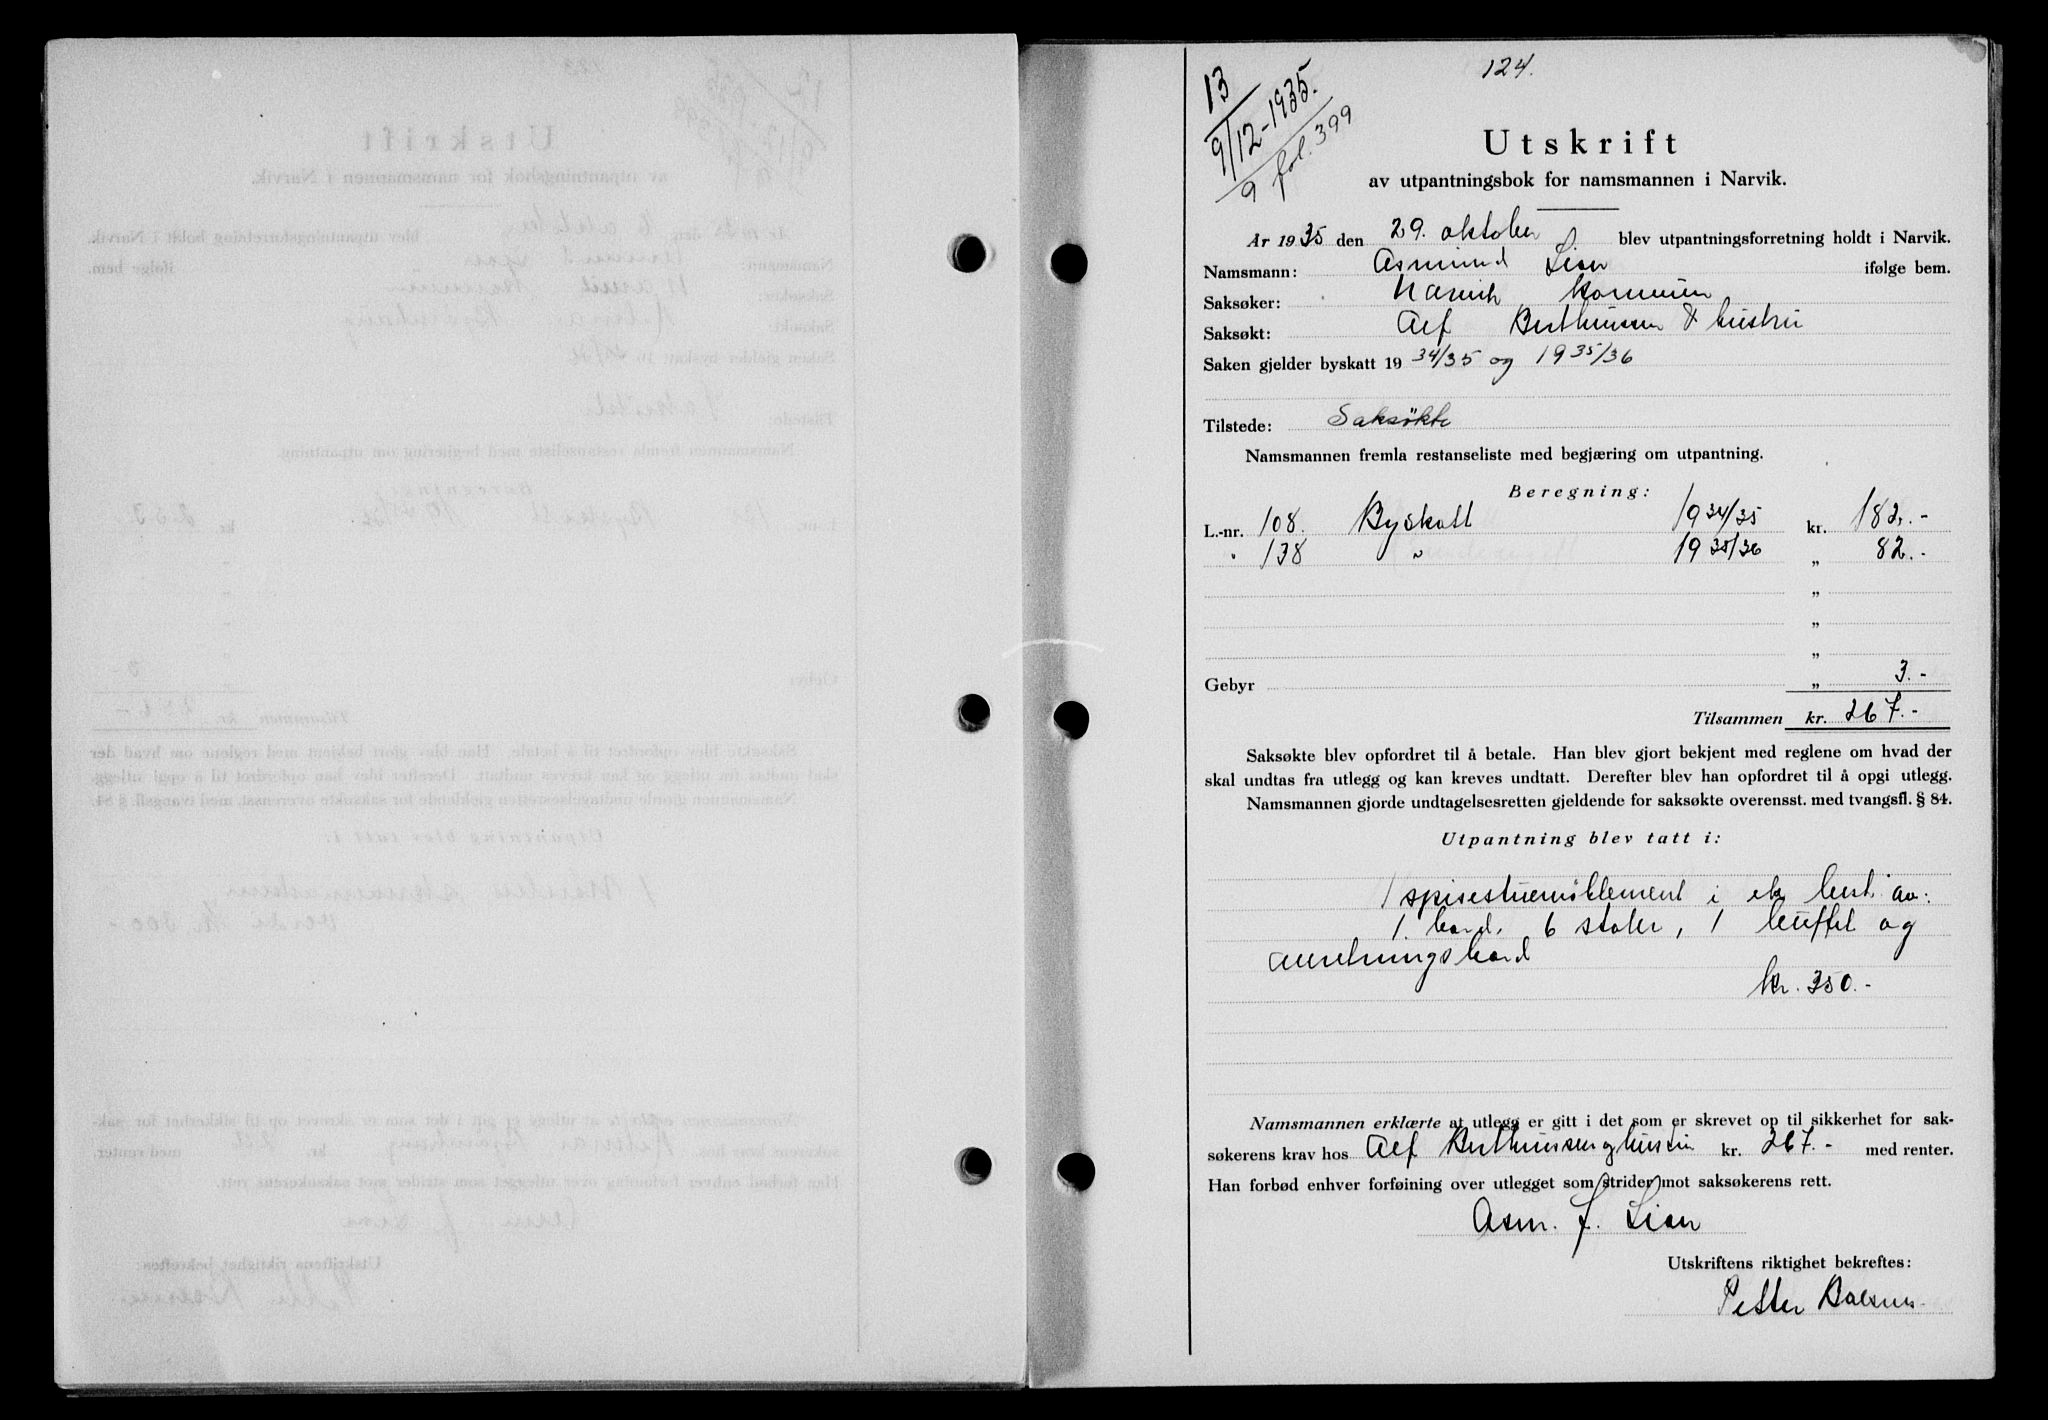 124.
13
9/12-1935.
9 fol. 399
Utskrift
av utpantningsbok for namsmannen i Narvik.
År 1935 den 29. oktober blev utpantningsforretning holdt i Narvik.
Namsmann: Asmund Lian ifølge bem.
Saksøker: Narvik kommune
Saksøkt: Alf Berthinussen & hustru
Saken gjelder byskatt 1934/35 og 1935/36
Tilstede: Saksøkte
Namsmannen fremla restanseliste med begjæring om utpantning.
Beregning:
L.-nr. 108. Byskatt 1934/35 kr. 182.-
" 138 " 1935/36 " 82.-
"
"
"
Gebyr " 3.-
Tilsammen kr. 267.-
Saksøkte blev opfordret til å betale. Han blev gjort bekjent med reglene om hvad der
skal undtas fra utlegg og kan kreves undtatt. Derefter blev han opfordret til å opgi utlegg.
Namsmannen gjorde undtagelsesretten gjeldende for saksøkte overensst. med tvangsfl. § 84.
Utpantning blev tatt i:
1 spisestuemøblement i ek best. av:
1. bord, 6 stoler, 1 buffet og
anretningsbord
kr. 350.-
Namsmannen erklærte at utlegg er gitt i det som er skrevet op til sikkerhet for sak-
søkerens krav hos Alf Berthinussen og hustru kr. 267.- med renter.
Han forbød enhver forføining over utlegget som strider mot saksøkerens rett.
Asm. J. Lian
Utskriftens riktighet bekreftes:
Petter